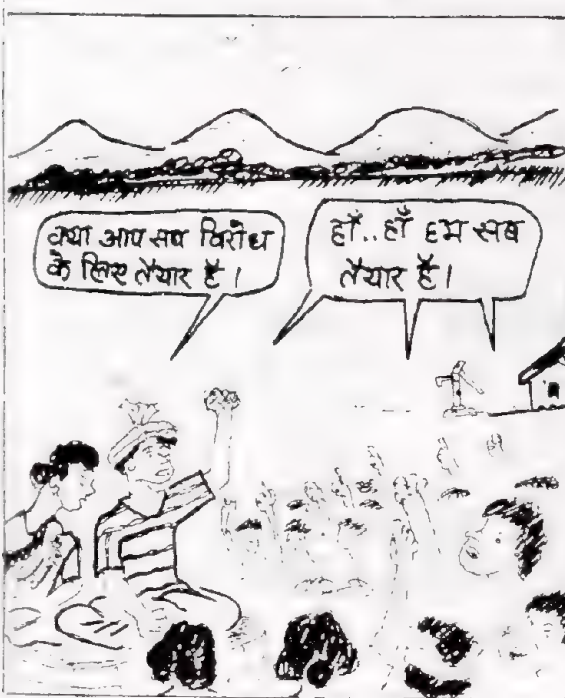 क्या आप सब विरोध
के लिए तैयार है।
हाँ..हाँ हम सब
तैयार है।